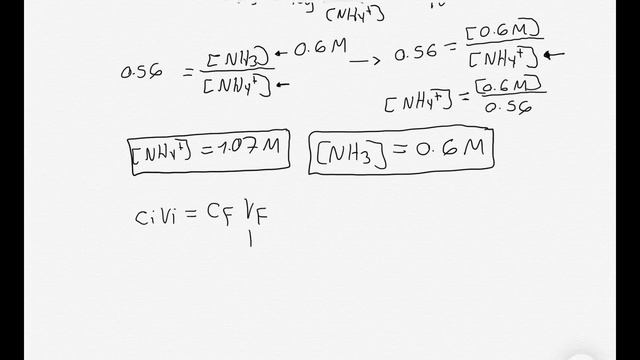 [NH4+]
0.56 = [NH3] ← 0.6 M → 0.56 = [0.6 M]
[NH4+] ← [NH4+] ←
[NH4+] = [0.6 M]
0.56
[NH4+] = 1.07 M [NH3] = 0.6 M
CiVi = CF VF